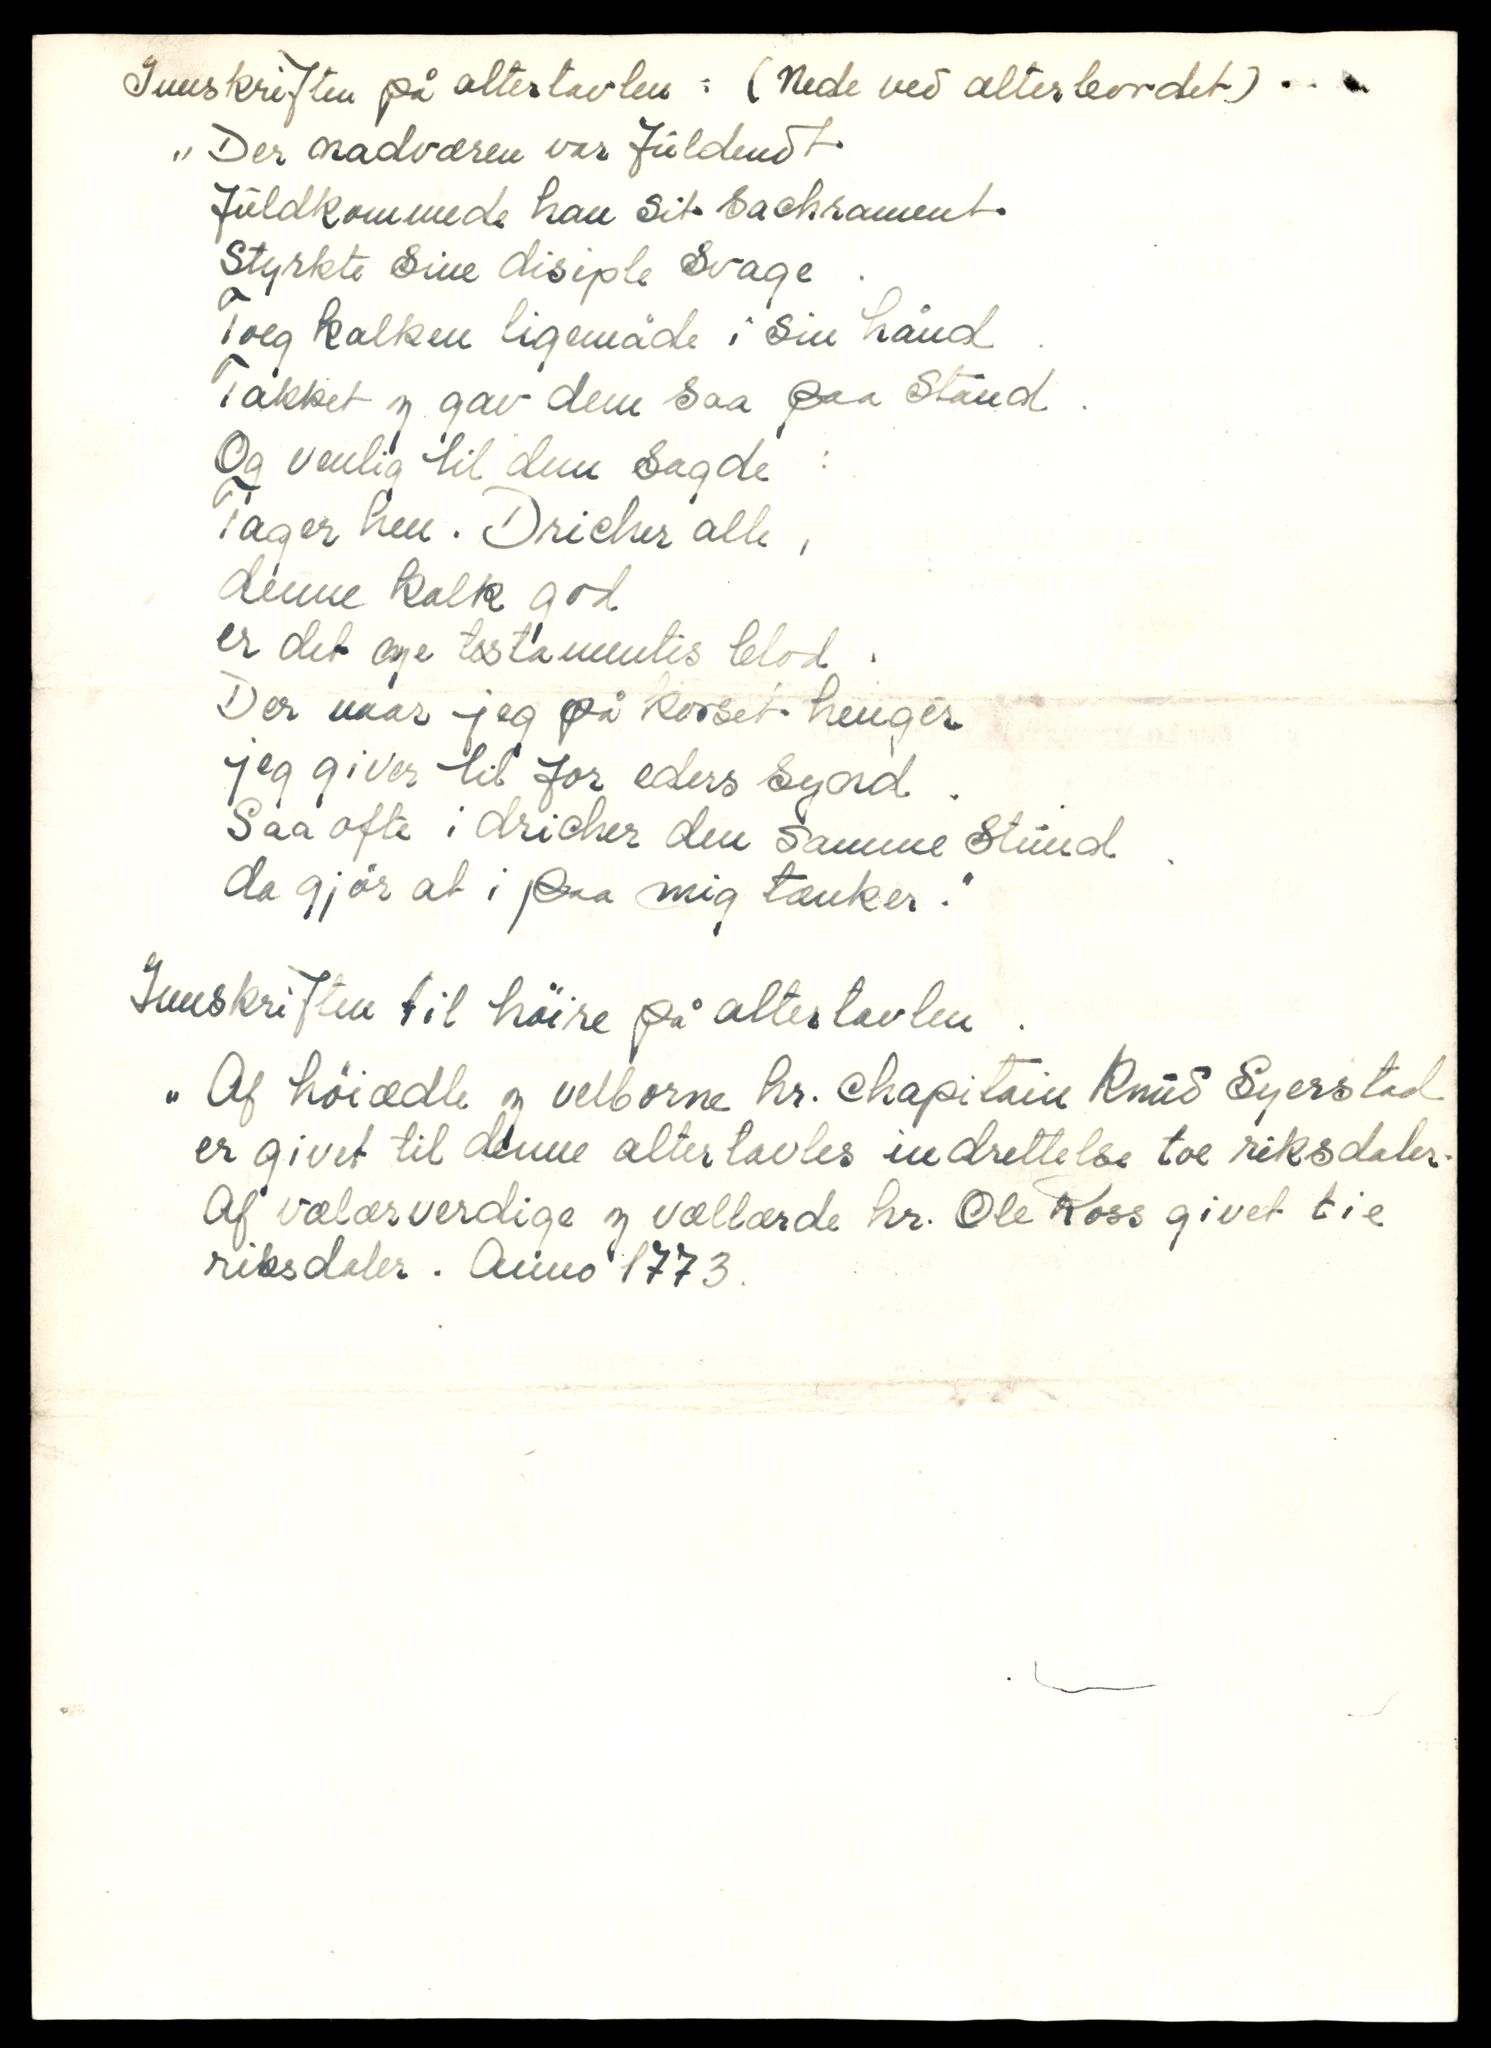 Innskriften på altertavlen : (Nede ved alterbordet) . . .
„ Der nadværen var füldendt.
füldkommede han sit sachrament.
Styrkte sine disiple svage .
Toeg kalken ligemåde i sin hånd .
Takket og gav dem saa paa stånd .
Og venlig til dem sagde :
Tager hen . Dricher alle ,
denne kalk god
er det nye testamentis blod .
Der naar jeg på korset henger
jeg giver til for eders synd .
Saa ofte i dricher den samme stünd .
da gjör at i paa mig tænker . "
Innskriften til höire på altertavlen .
„ Af höiædle og velborne hr. Chapitain Knüd Syerstad
er givet til denne altertavles indrettelse toe riksdaler.
Af vælærverdige og vællærde hr. Ole Ross givet tie
riksdaler . Anno 1773.